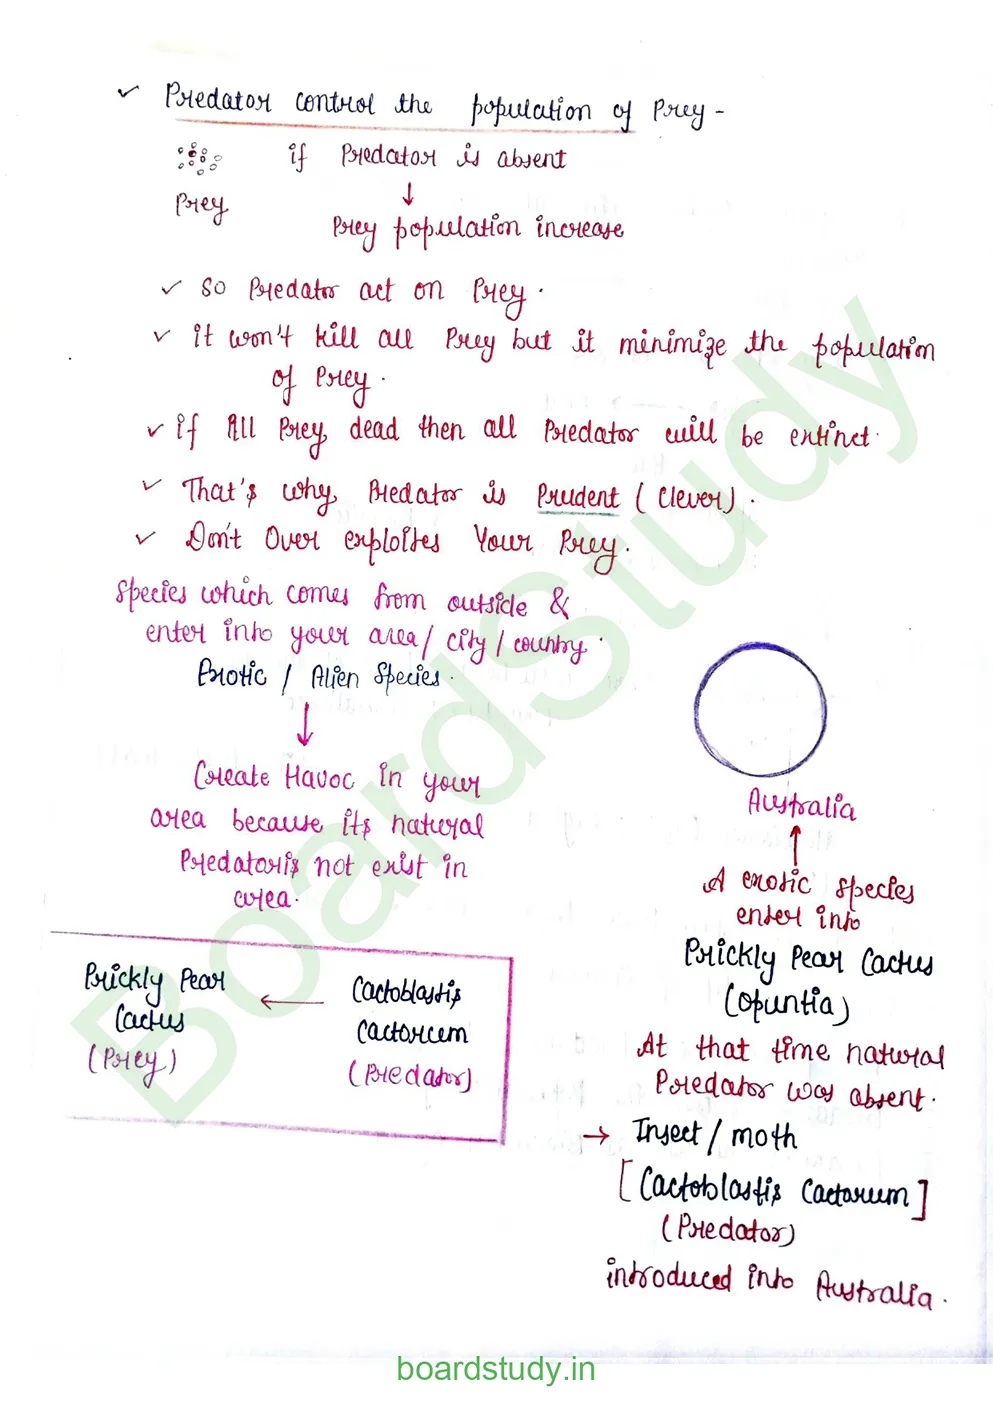 ✓ Predator control the population of Prey -
if Predator is absent
Prey
↓
Prey population increase
✓ So Predator act on Prey.
✓ it won't kill all Prey but it minimize the population
of Prey.
✓ if All Prey dead then all Predator will be extinct.
✓ That's why Predator is Prudent (Clever).
✓ Don't Over exploites Your Prey.
Species which comes from outside &
enter into your area/city/country.
Exotic / Alien Species.
↓
Create Havoc in your
area because its natural
Predatoris not exist in
area.
Prickly Pear
Cactus
(Prey)
←
Cactoblastis
Cactorcum
(Predator)
Australia
↑
A exotic species
enter into
Prickly Pear Cactus
(Opuntia)
At that time natural
Predator was absent.
→ Insect / moth
[Cactoblastis Cactorum]
(Predator)
introduced into Australia.
BoardStudy
boardstudy.in